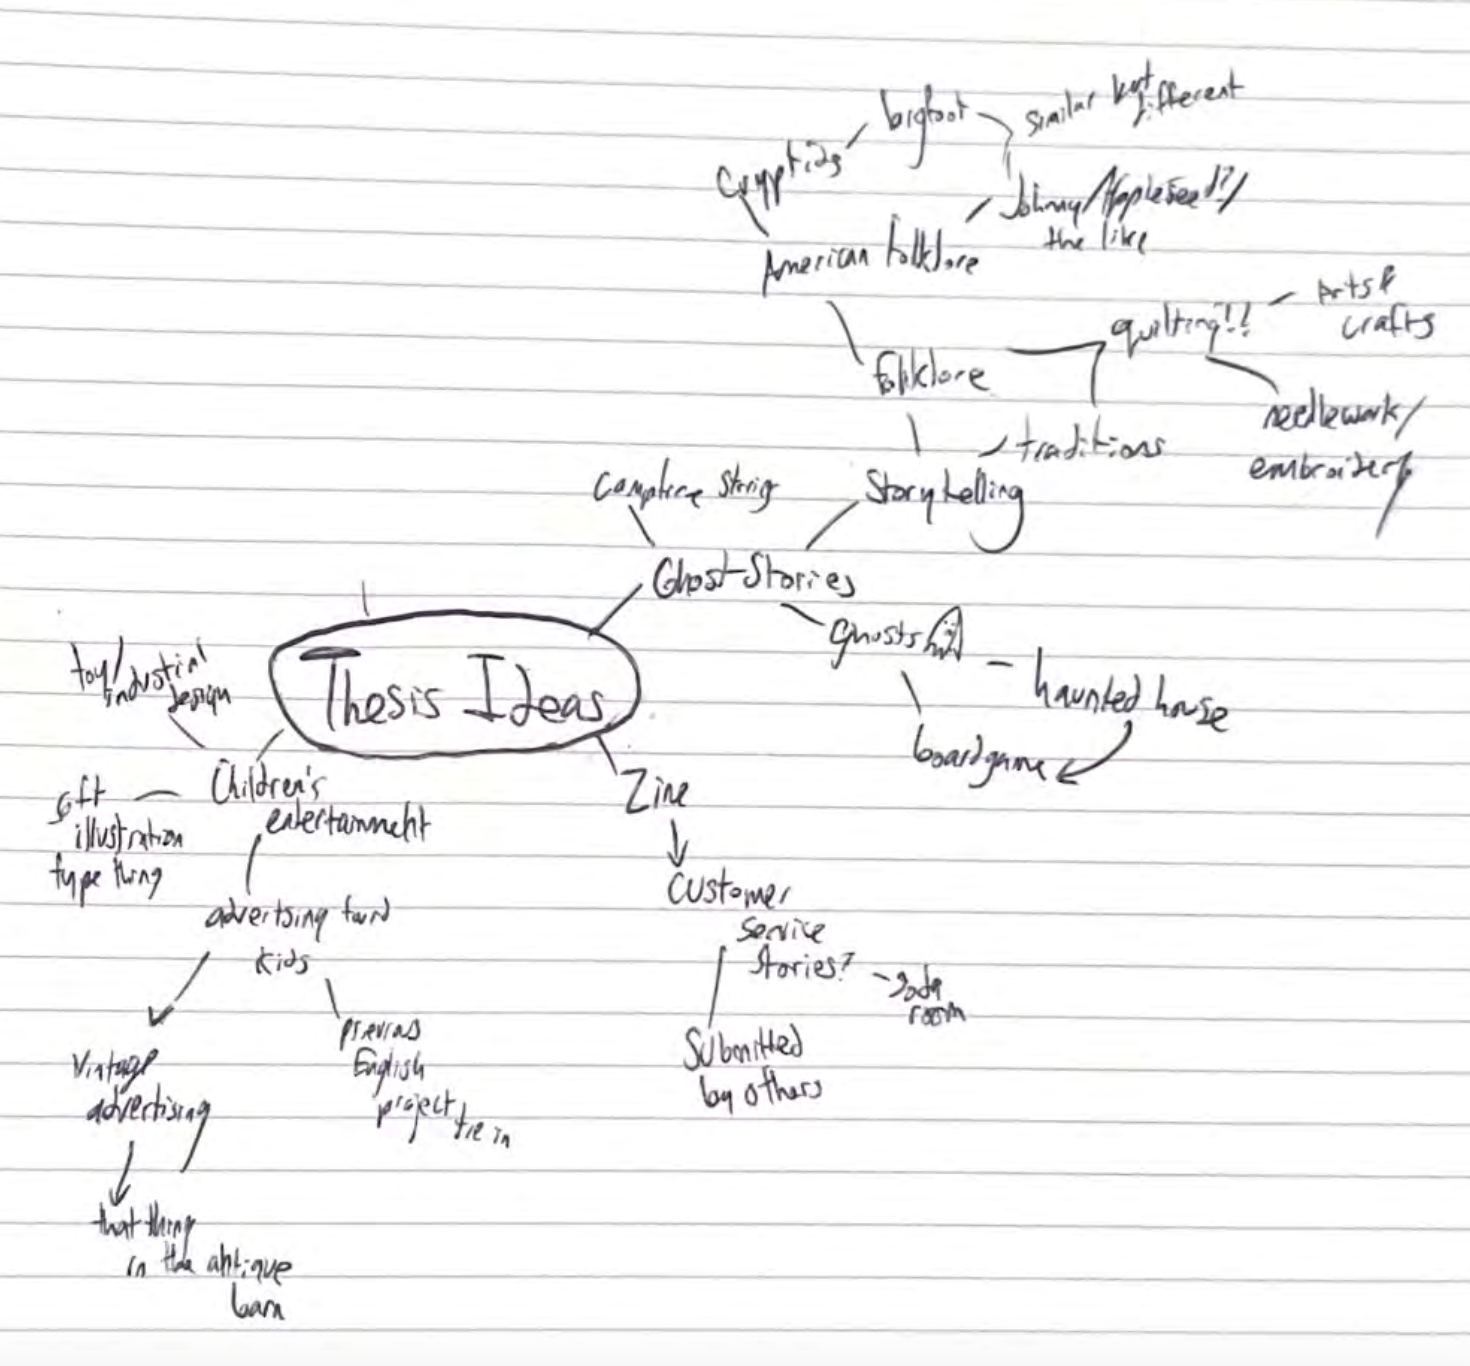 bigfoot
similar but different
Cryptids
Johnny/Appleseed?/
the like
American folklore
Arts &
crafts
quilting!!
folklore
needlework/
embroidery
traditions
Storytelling
Campfire
Ghost Stories
ghosts
haunted house
boardgame
toy/
industrial
design
Thesis Ideas
Zine
Children's
entertainment
illustration
type thing
Customer
Service
Stories?
soda
room
advertsing
kids
previous
English
project
tie in
Submitted
by others
Vintage
advertising
that thing
in the antique
barn